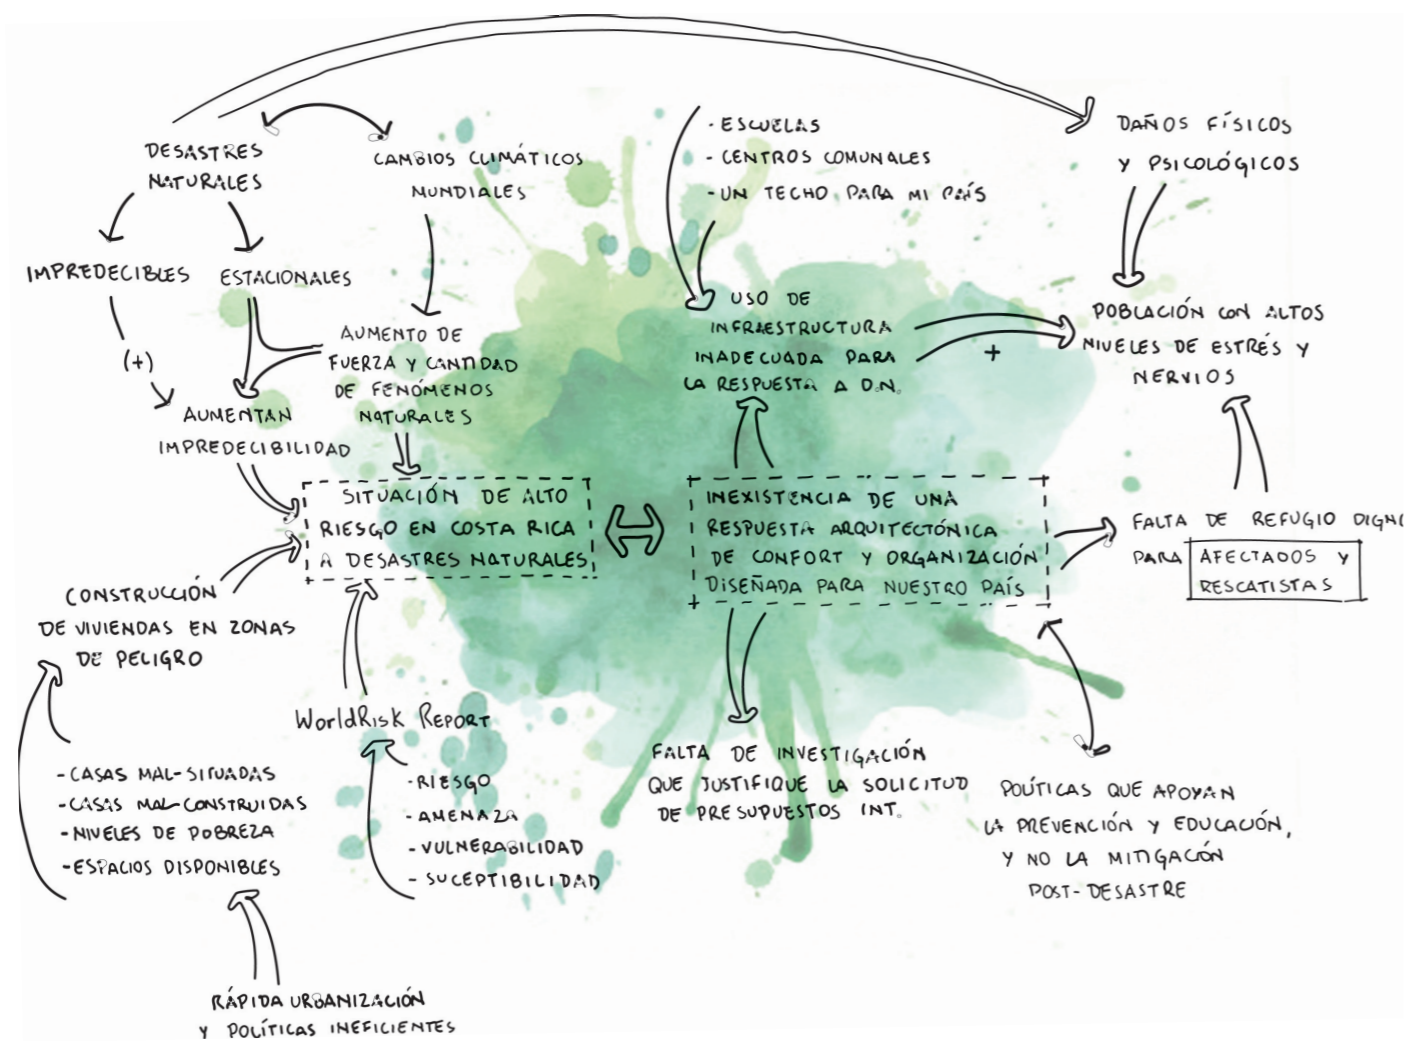 DESASTRES
NATURALES
CAMBIOS CLIMÁTICOS
MUNDIALES
- ESCUELAS
- CENTROS COMUNALES
- UN TECHO PARA MI PAÍS
DAÑOS FÍSICOS
Y PSICOLÓGICOS
IMPREDECIBLES
ESTACIONALES
(+)
AUMENTO DE
FUERZA Y CANTIDAD
DE FENÓMENOS
NATURALES
AUMENTAN
IMPREDECIBILIDAD
USO DE
INFRAESTRUCTURA
INADECUADA PARA
LA RESPUESTA A D.N.
+
POBLACIÓN CON ALTOS
NIVELES DE ESTRÉS Y
NERVIOS
SITUACIÓN DE ALTO
RIESGO EN COSTA RICA
A DESASTRES NATURALES
INEXISTENCIA DE UNA
RESPUESTA ARQUITECTÓNICA
DE CONFORT Y ORGANIZACIÓN
DISEÑADA PARA NUESTRO PAÍS
FALTA DE REFUGIO
PARA AFECTADOS Y
RESCATISTAS
CONSTRUCCIÓN
DE VIVIENDAS EN ZONAS
DE PELIGRO
WorldRisk REPORT
- CASAS MAL-SITUADAS
- CASAS MAL-CONSTRUIDAS
- NIVELES DE POBREZA
- ESPACIOS DISPONIBLES
- RIESGO
- AMENAZA
- VULNERABILIDAD
- SUCEPTIBILIDAD
FALTA DE INVESTIGACIÓN
QUE JUSTIFIQUE LA SOLICITUD
DE PRESUPUESTOS INT.
POLÍTICAS QUE APOYAN
LA PREVENCIÓN Y EDUCACIÓN,
Y NO LA MITIGACIÓN
POST-DESASTRE
RÁPIDA URBANIZACIÓN
Y POLÍTICAS INEFICIENTES